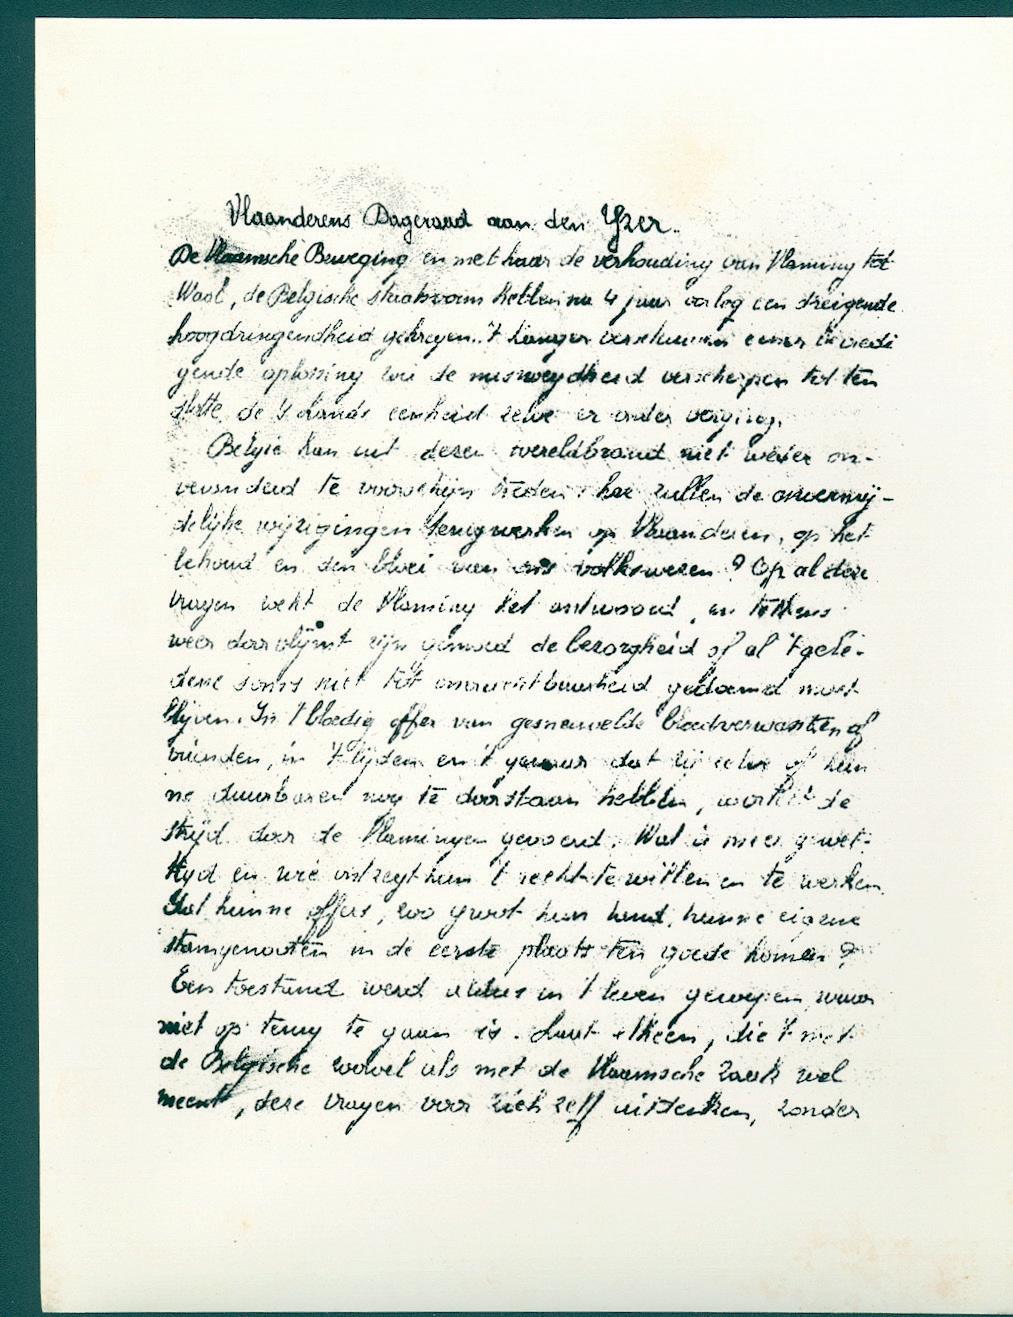 Vlaanderens Dageraad aan den Yzer.
De Vlaamsche Beweging en met haar de verhouding van Vlaming tot
Waal, de Belgische staatsvorm hebben na 4 jaar oorlog een dreigende
hoogdringendheid gekregen. 't Langer verschuiven eener bevredi
gende oplossing zou de misnoegdheid verscherpen tot ten
slotte de 's Lands eenheid zelve er onder verging.
België kan uit dezen wereldbrand niet weer on-
veranderd te voorschijn treden: hoe zullen de onvermij-
delijke wijzigingen terugwerken op Vlaanderen, op het
behoud en den bloei van ons volkswezen? Op al deze
vragen wekt de Vlaming het antwoord, en telkens
weer doorvlijmt zijn gemoed de bezorgheid of al 't gele-
dene soms niet tot onvruchtbaarheid gedoemd moet
blijven. In 't bloedig offer van gesneuvelde bloedverwanten of
vrienden, in 't lijden en 't gevaar dat zij zelve of hun
ne duurbaren nog te doorstaan hebben, wortelt de
strijd door de Vlamingen gevoerd. Wat is meer gewet-
tigd en wie ontzegt hun 't recht te willen en te werken
dat hunne offers, zoo groot hun land, hunne eigene
stamgenooten in de eerste plaats ten goede komen?
Een toestand werd aldus in 't leven geroepen, waar
niet op terug te gaan is. Laat elkeen, die 't met
de Belgische zoowel als met de Vlaamsche Zaak wel
meent, deze vragen voor zich zelf uitdenken, zonder